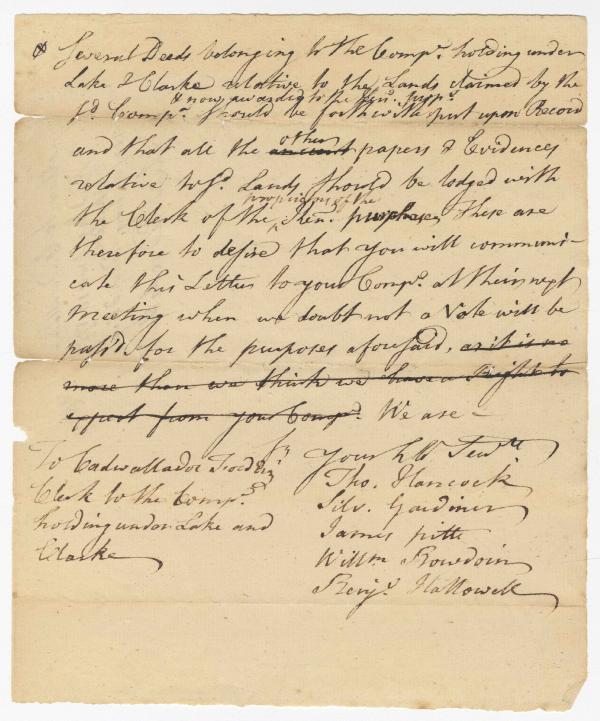 Several Deeds belonging to the Compy. holding under
Lake & Clarke relative to the Lands claimed by the
& now awarded to the
sd. Compy. should be forthwith put upon Record
other
and that all the ancient papers & Evidences
relative to sd. Lands should be lodged with
proprietors of the
the Clerk of the Ken. purchase, These are
therefore to desire that you will communi-
cate this Letter to your Compy. at their next
Meeting when we doubt not a Vote will be
pass'd for the purposes aforesaid, as it is no
more than we think we have a Right to
expect from your Compy. We are -
Your Servts.
To Cadwallador Ford
Clerk to the Compy.
holding under Lake and
Clarke
Tho. Hancock
Silv. Gardiner
James pitts
Willm Bowdoin
Benjn. Hallowell